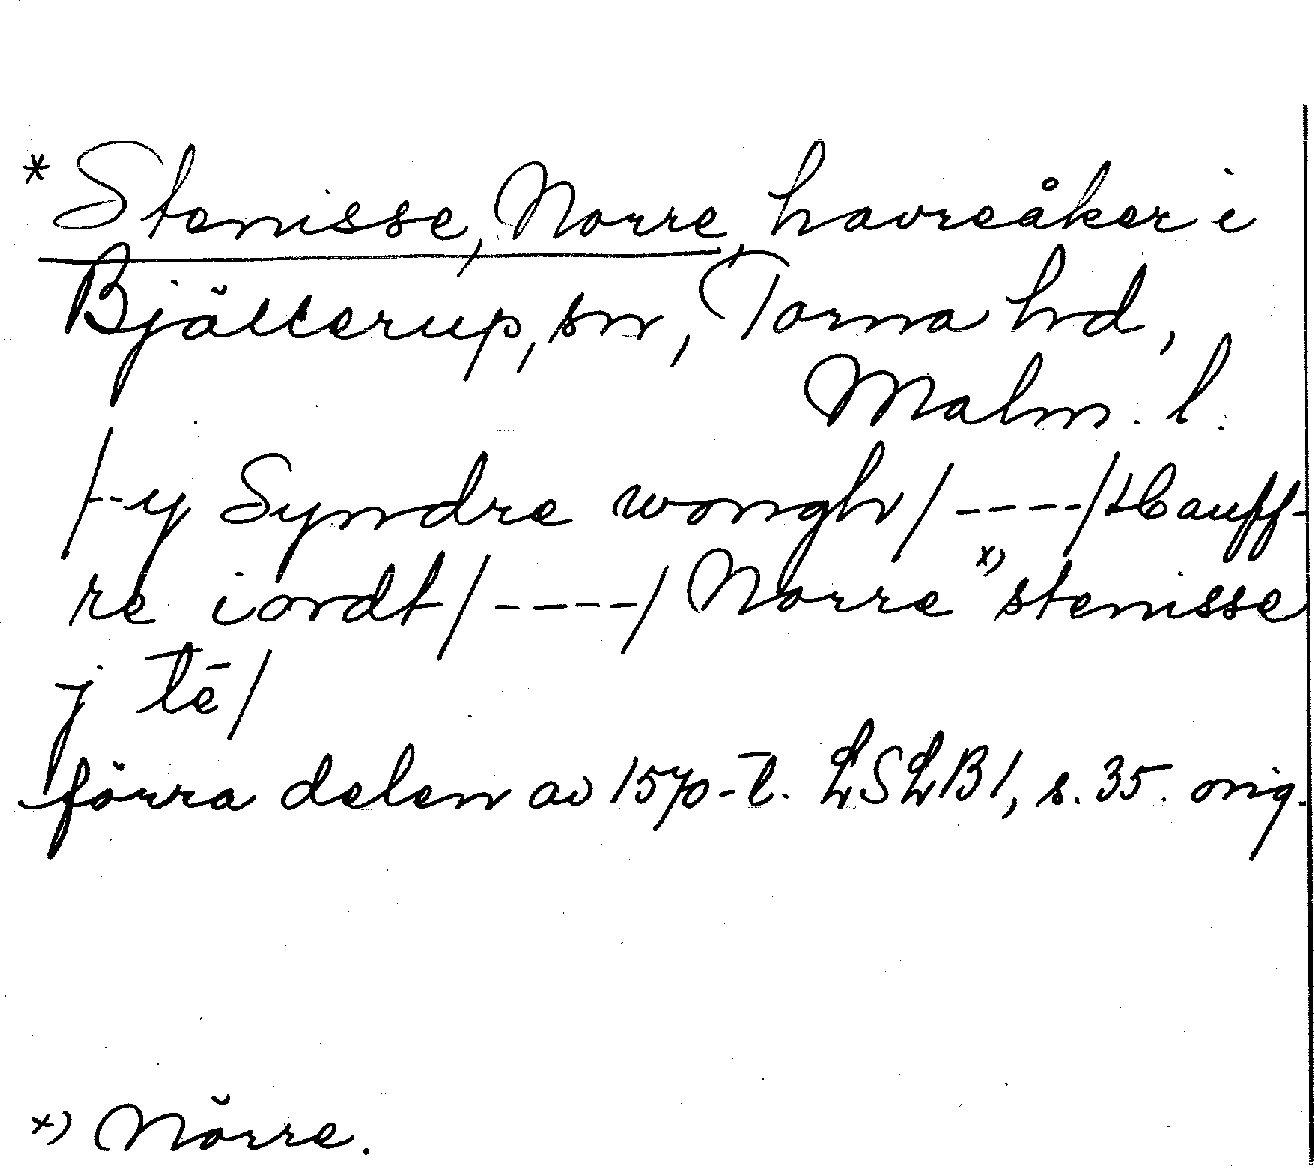 * Stenisse, Norre, havreåker i
Bjällerup, sn, Torna hd,
Malm. l.
/--y Syndre wongh/ ----/Hauff-
re iordt/ ----/ Norre x) stenisse
j tē/
förra delen av 1570-t. LSLB1, s. 35. orig.
x) Nŏrre.